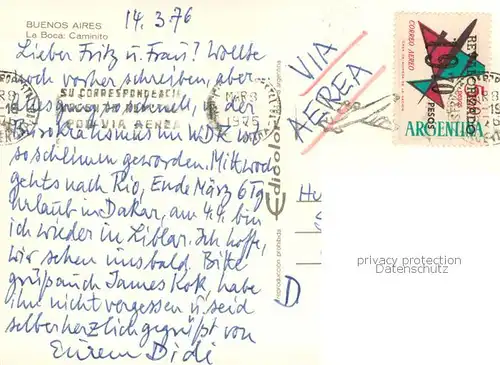 BUENOS AIRES
La Boca: Caminito
14.3.76
Lieber Fritz u. Frau! Wollte
doch vorher schreiben, aber
so schnell, u. der
Bürokratismus im WDR ist
so schlimm geworden. Mittwoch
gehts nach Rio, Ende März 6 Tg
Urlaub in Dakar, am 4.4. bin
ich wieder in Liblar. Ich hoffe,
wir sehen uns bald. Bitte
grüß auch James Kok, habe
ihn nicht vergessen u. seid
selber herzlich gegrüßt von
Eurem Didi
SU CORRESPONDENCIA
POR VIA AEREA
VIA
AEREA
dicolor
reproducción prohibida
CORREO AEREO
REVALORIZADO
PESOS
ARGENTINA
D
privacy protection
Datenschutz